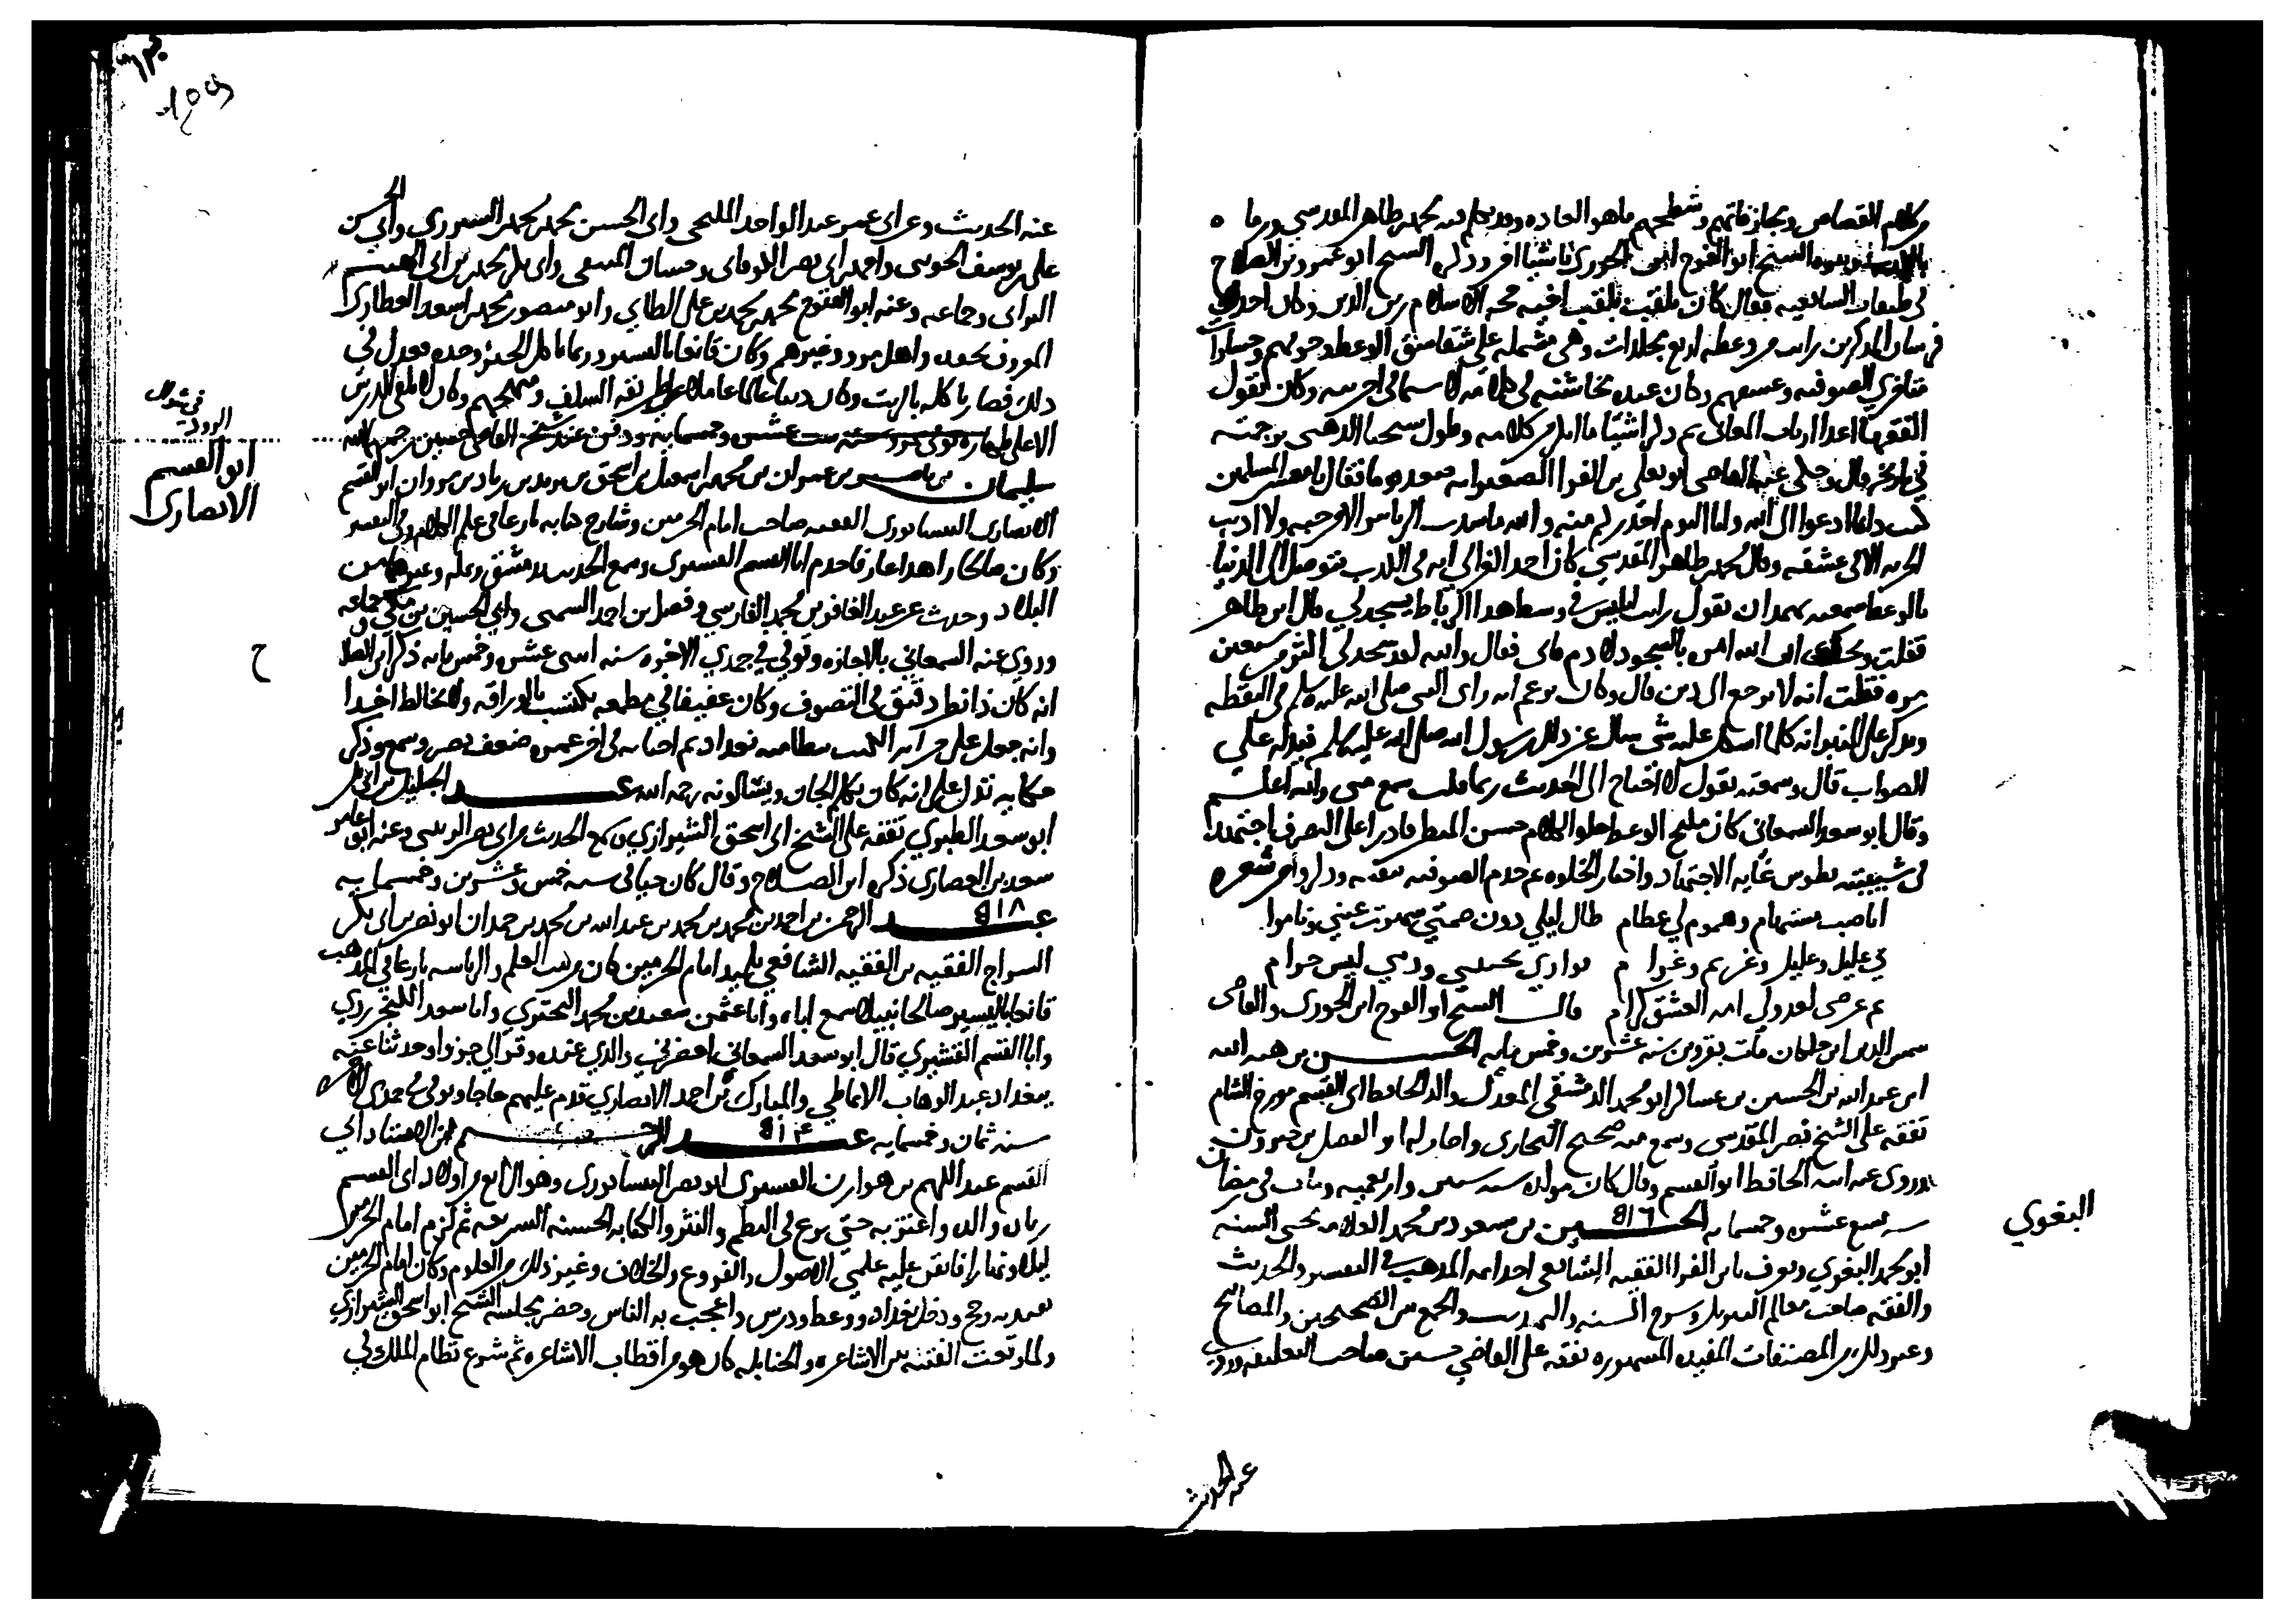 وكلام القصاص ومجازفاتهم وشطحهم ما هو العاده وقد تكلم فيه محمد بن طاهر المقدسي ورماه
الشيخ ابو الفرج ابن الجوزي باشيا اخر وذكره الشيخ ابو عمرو بن الصلاح
في طبقات الشافعيه فقال كان يلقب بلقب اخيه حجه الاسلام زين الدين وكان احد
فرسان المذكرين رايت من وعظه اربع مجلدات وهي مشتمله على شقاشق الوعظ وجسارات
متاخري الصوفيه وعسفهم وكان عنده مخاشنه في كلامه لا سيما في اجوبته وكان يقول
الفقها اعدا ارباب المعاني ثم ذكر اشيا من كلامه وطول شيخنا الذهبي ترجمته
في تاريخه قال وحكى عنه القاضي ابو يعلى بن الفرا انه صعد يوما فقال يا معشر المسلمين
كنت دايما ادعوا الى الله وانا اليوم احذركم منه والله ما شدت الزنانير الا في حبه ولا اديت
الجزيه الا في عشقه وقال محمد بن طاهر المقدسي كان احمد الغزالي ايه في الكذب يتوصل الى الدنيا
بالوعظ سمعته بهمدان يقول رايت ابليس في وسط هذا الرباط يسجد لي قال ابن طاهر
فقلت ويحك ان الله امره بالسجود لادم فابى فقال والله لقد سجد لي اكثر من سبعين
مره فقلت انه لا يرجع الى دين قال وكان يزعم انه راى النبي صلى الله عليه وسلم في اليقظه
ويذكر على المنبر انه كلما اشكل عليه شي سال عن ذلك رسول الله صلى الله عليه وسلم فيدله على
الصواب قال وسمعته يقول لا احتاج الى الحديث مهما قلت سمع مني والله اعلم
وقال ابو سعد السمعاني كان مليح الوعظ حلو الكلام حسن المنظر قادرا على التصرف اجتهد
في شبيبته بطوس غايه الاجتهاد واختار الخلوه ثم خدم الصوفيه بنفسه وذكروا من شعره
انا صب مستهام وهموم لي عظام طال ليلي دون صحبي سهرت عيني وناموا
بي عليل وغليل وغريم وغرام ودمي ليس حرام
ثم عرضي لعذولي امه العشق كرام قال الشيخ ابو الفرج ابن الجوزي والقاضي
شمس الدين ابن خلكان مات بقزوين سنه عشرين وخمس مايه الحسن بن هبه الله
ابن عبد الله بن الحسين بن عساكر ابو محمد الدمشقي المعدل والد الحافظ ابي القسم مورخ الشام
تفقه على الشيخ نصر المقدسي وسمع منه صحيح البخاري واجاز له ابو الفضل بن خيرون
وروى عنه ابنه الحافظ ابو القسم وقال كان مولده سنه ستين واربعميه ومات في رمضان
سنه تسع عشره وخمسمايه الحسين بن مسعود بن محمد العلامه محيي السنه
٥١٦
البغوي
ابو محمد البغوي ويعرف بابن الفرا الفقيه الشافعي احد ايمه المذهب في التفسير والحديث
والفقه صاحب معالم التنزيل وشرح السنه والتهذيب والجمع بين الصحيحين والمصابيح
وغير ذلك من المصنفات المفيده المشهوره تفقه على القاضي حسين صاحب التعليقه وروى
عنه الحديث
عنه الحديث وعن ابي عمر عبد الواحد المليحي وابي الحسن محمد بن محمد الشيرزي وابي الحسن
علي بن يوسف الجويني واحمد بن ابي نصر الكوفاني وحسان المنيعي وابي بكر محمد بن ابي الهيثم
الترابي وجماعه وعنه ابو الفتوح محمد بن محمد بن علي الطاي وابو منصور محمد بن اسعد العطاري
المعروف بحفده واهل مرو وغيرهم وكان قانعا باليسير وربما ياكل الخبز وحده فعدل في
ذلك فصار ياكله بالزيت وكان دينا عالما عاملا على طريقه السلف ومنهجهم وكان لا يلقي الدرس
الا على طهاره توفي بمرو سنه ست عشره وخمسمايه ودفن عند شيخه القاضي حسين رحمهما الله
في شوال
الروذ
ابو القسم
الانصاري
سليمان بن ناصر بن عمران بن محمد بن اسمعيل بن اسحق بن يزيد بن زياد بن ميمون ابو القسم
الانصاري النيسابوري الفقيه صاحب امام الحرمين وشارح كتابه بارعا في علم الكلام وفي التفسير
وكان صالحا زاهدا عارفا خدم ابا القسم القشيري وسمع الحديث بدمشق ومكه وغيرهما من
البلاد وحدث عن عبد الغافر بن محمد الفارسي وفضل بن احمد وابي الحسين بن مكي وجماعه
ح
وروى عنه السمعاني بالاجازه وتوفي في جمدى الاخره سنه اثنى عشره وخمس مايه ذكر ابن الصلاح
انه كان ذا نظر دقيق في التصوف وكان عفيفا في مطعمه يكتسب بالوراقه ولا يخالط احدا
وانه جعل على خزانه الكتب بنظاميه ثم اصابه في اخر عمره ضعف بصر وسمع وذكر
حكايه تدل على انه كان يكلم الجان ويسالونه رحمه الله عبد الجليل بن ابي بكر
ابو سعد الطبري تفقه على الشيخ ابي اسحق الشيرازي وسمع الحديث من ابي نصر الزينبي وعنه ابو عامر
سعد بن العصاري ذكره ابن الصلاح وقال كان حيا في سنه خمس وعشرين وخمسمايه
٥١٨
عبد الرحمن بن احمد بن محمد بن محمد بن عبد الله بن محمد بن حمدان ابو نصر بن ابي بكر
السراج الفقيه بن الفقيه الشافعي تلميذ امام الحرمين كان من بيت العلم والرياسه بارعا في المذهب
قانعا باليسير صالحا نبيلا سمع اباه وابا عثمن سعيد بن محمد البحتري وابا سعد الكنجرودي
وابا القسم القشيري قال ابو سعد السمعاني احضرني والدي عنده وقرا لي جزوا وحدثنا عنه
ببغداد عبد الوهاب الانماطي والمبارك بن احمد الانصاري قدم عليهم حاجا وتوفي في جمدى الاخره
سنه ثمان وخمسمايه عبد الرحيم بن الاستاذ ابي
٥١٤
القسم عبد الكريم بن هوازن القشيري ابو نصر النيسابوري وهو الرابع من اولاد ابي القسم
رباه والده واعتنى به حتى برع في النظم والنثر والكتابه الحسنه السريعه ثم لزم امام الحرمين
ليلا ونهارا فاتقن عليه علمي الاصول والفروع والخلاف وغير ذلك من العلوم وكان امام الحرمين
يعتد به وحج ودخل بغداد ووعظ ودرس واعجب به الناس وحضر مجلسه الشيخ ابو اسحق الشيرازي
ولما وقعت الفتنه بين الاشاعره والحنابله كان هو من اقطاب الاشاعره ثم شرع نظام الملك في